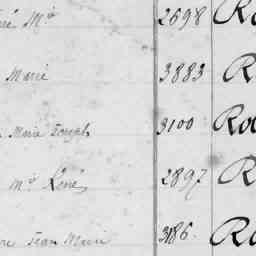 Mie 2698 Ro
Marie 3883 R
Marie Joseph 3100 Ro
Mie René 2897 R
Jean Marie 3186 Ro